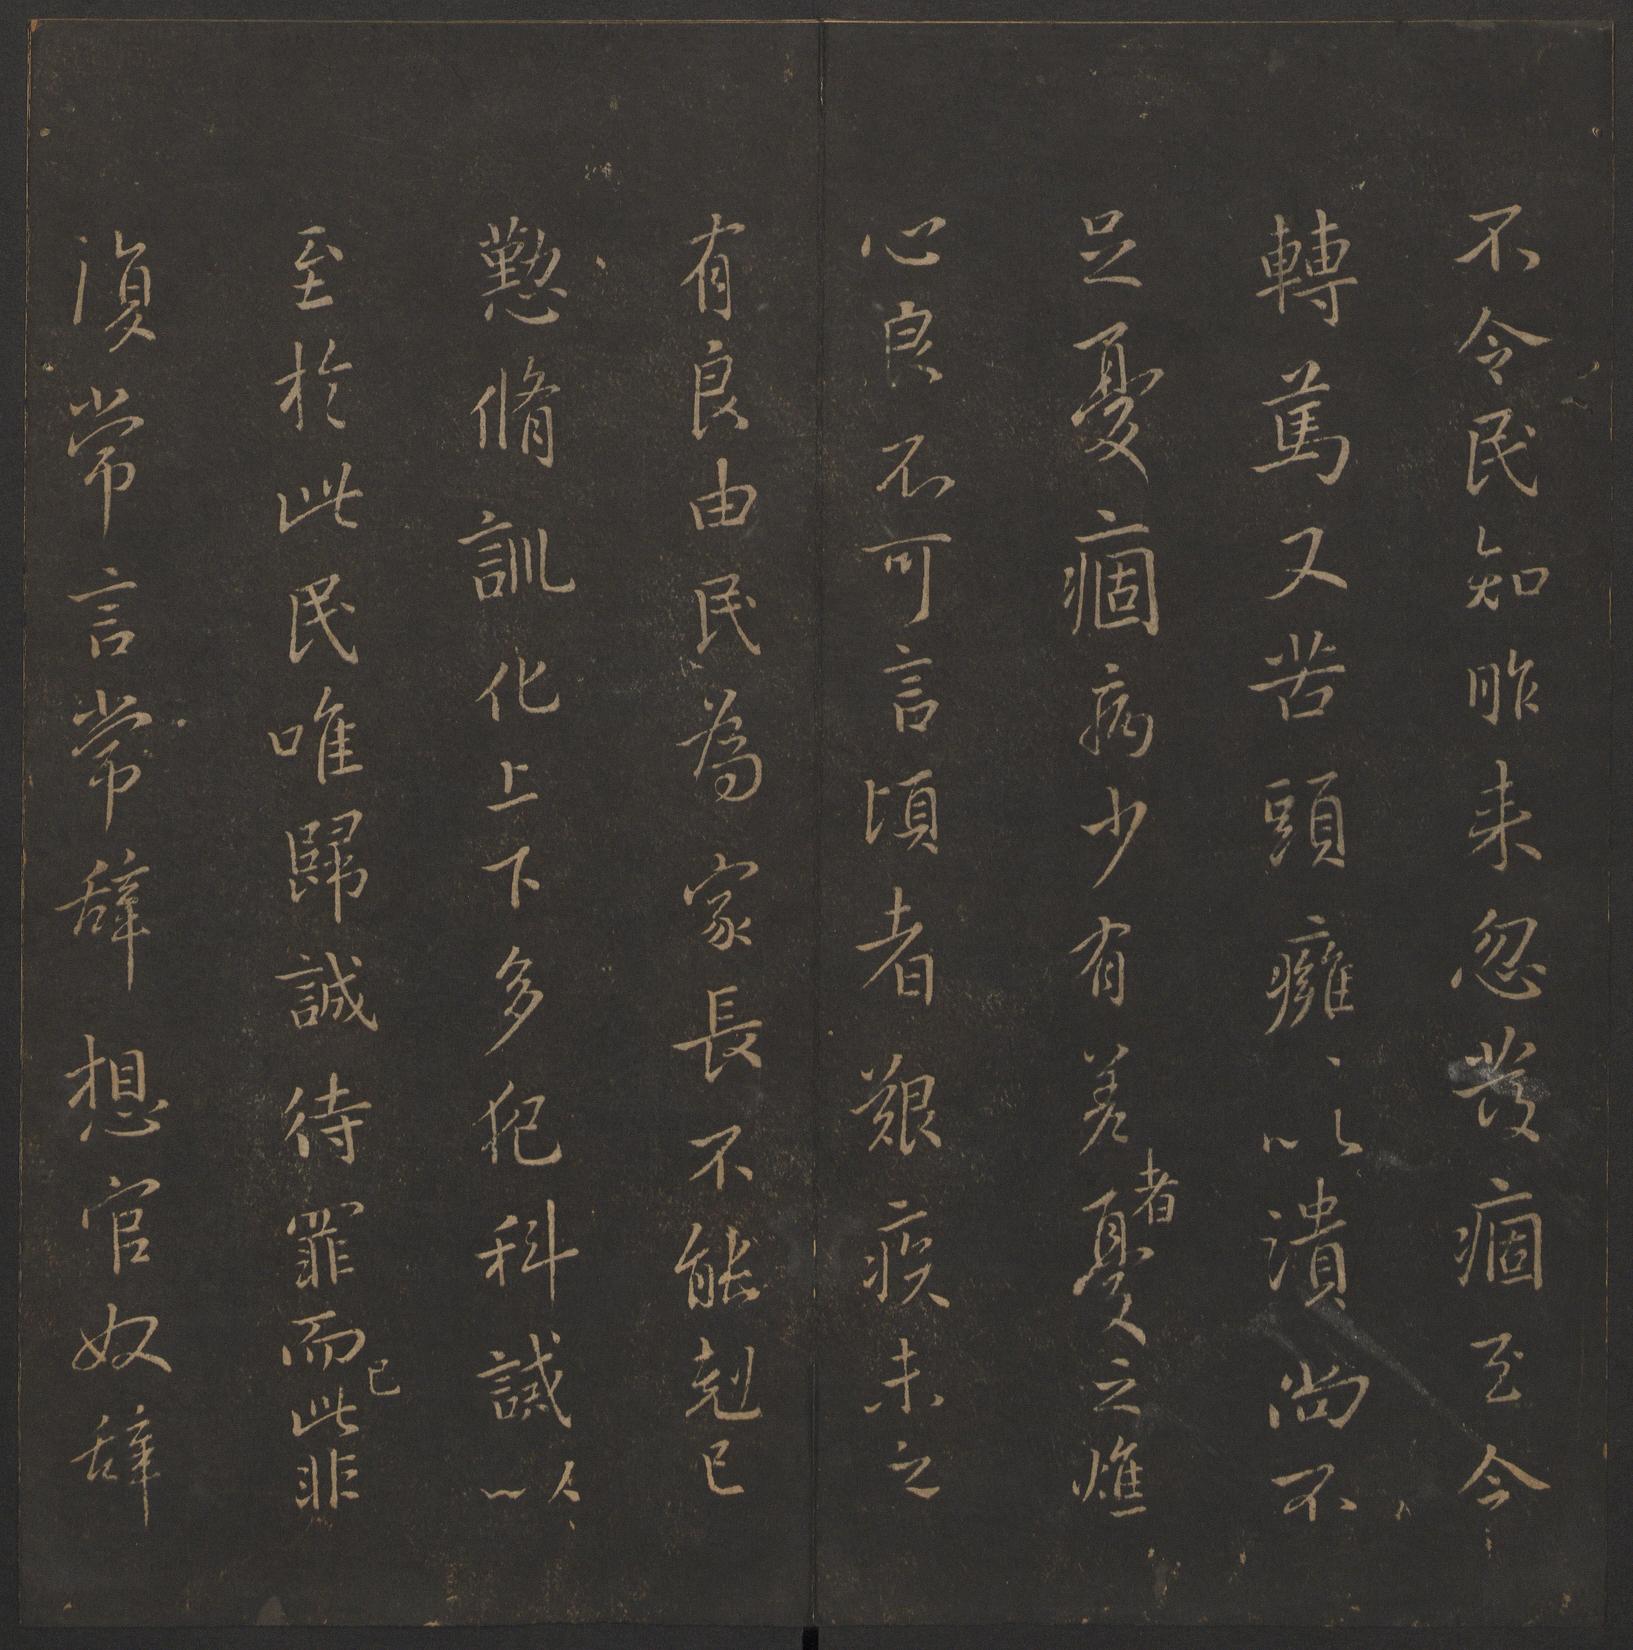 不令民知昨来忽發痼至今
轉篤又苦頭癰、以潰尚不
足憂痼病少有差者憂之燋
心良不可言頃者艱疾未之
有良由民為家長不能剋己
懃脩訓化上下多犯科誡以
至於此民唯歸誠待罪而已此非
復常言常辞想官奴辞